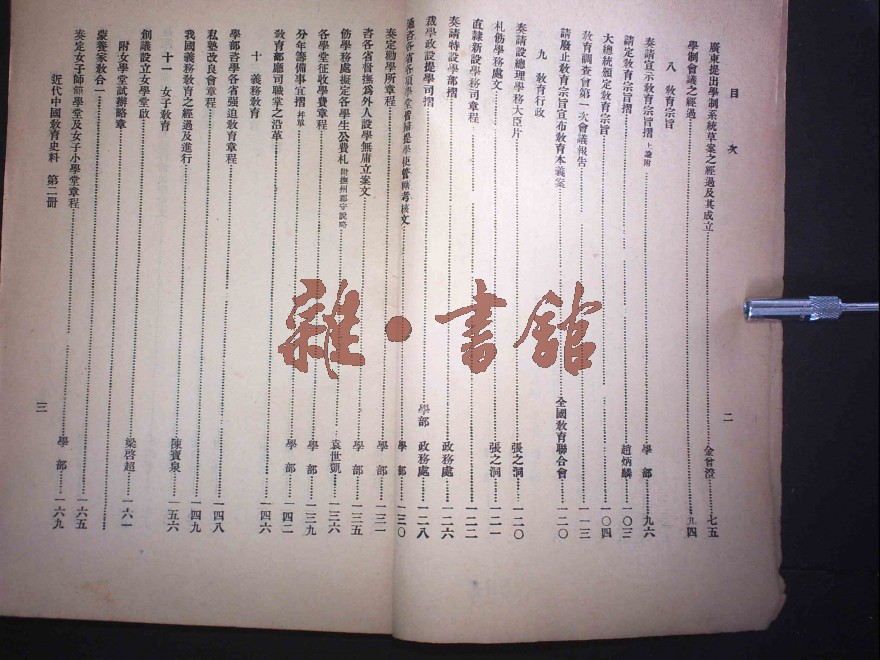 目　次
二
廣東提出學制系統草案之經過及其成立……金曾澄……七五
學制會議之經過……九四
八　教育宗旨
奏請宣示教育宗旨摺 上諭附……學部……九六
請定教育宗旨摺……趙炳麟……一〇三
大總統頒定教育宗旨……一〇四
教育調查會第一次會議報告……一一三
請廢止教育宗旨宣布教育本義案……全國教育聯合會……一二〇
九　教育行政
奏請設總理學務大臣片……張之洞……一二〇
札飭學務處文……張之洞……一二一
直隸新設學務司章程……一二二
奏請特設學部摺……政務處……一二六
裁學政設提學司摺……學部　政務處……一二八
通咨各省各項學堂皆歸提學使管轄考核文……學部……一三〇
奏定勸學所章程……學部……一三一
咨各省督撫為外人設學無庸立案文……學部……一三五
飭學務處擬定各學生公費札 附撫州郡守說略……袁世凱……一三六
各學堂征收學費章程……學部……一三九
分年籌備事宜摺 并單……學部……一四二
教育部廳司職掌之沿革……一四六
十　義務教育
學部咨學各省強迫教育章程……一四八
私塾改良會章程……一四九
我國義務教育之經過及進行……陳寶泉……一五六
十一　女子教育
創議設立女學堂啟……梁啓超……一六一
附女學堂試辦略章
蒙養家教合一……一六五
奏定女子師範學堂及女子小學堂章程……學部……一六九
近代中國教育史料　第二冊
三
雜·書館